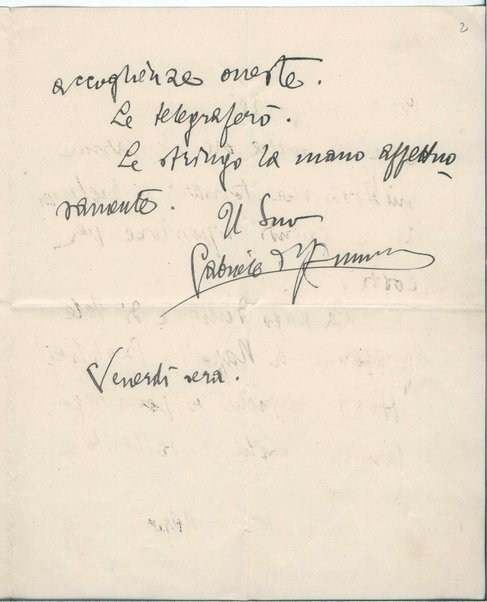 2
accoglienze oneste.
Le telegraferò.
Le stringo la mano affettuo
samente. Il Suo
Gabriele d'Annunzio
Venerdì sera.